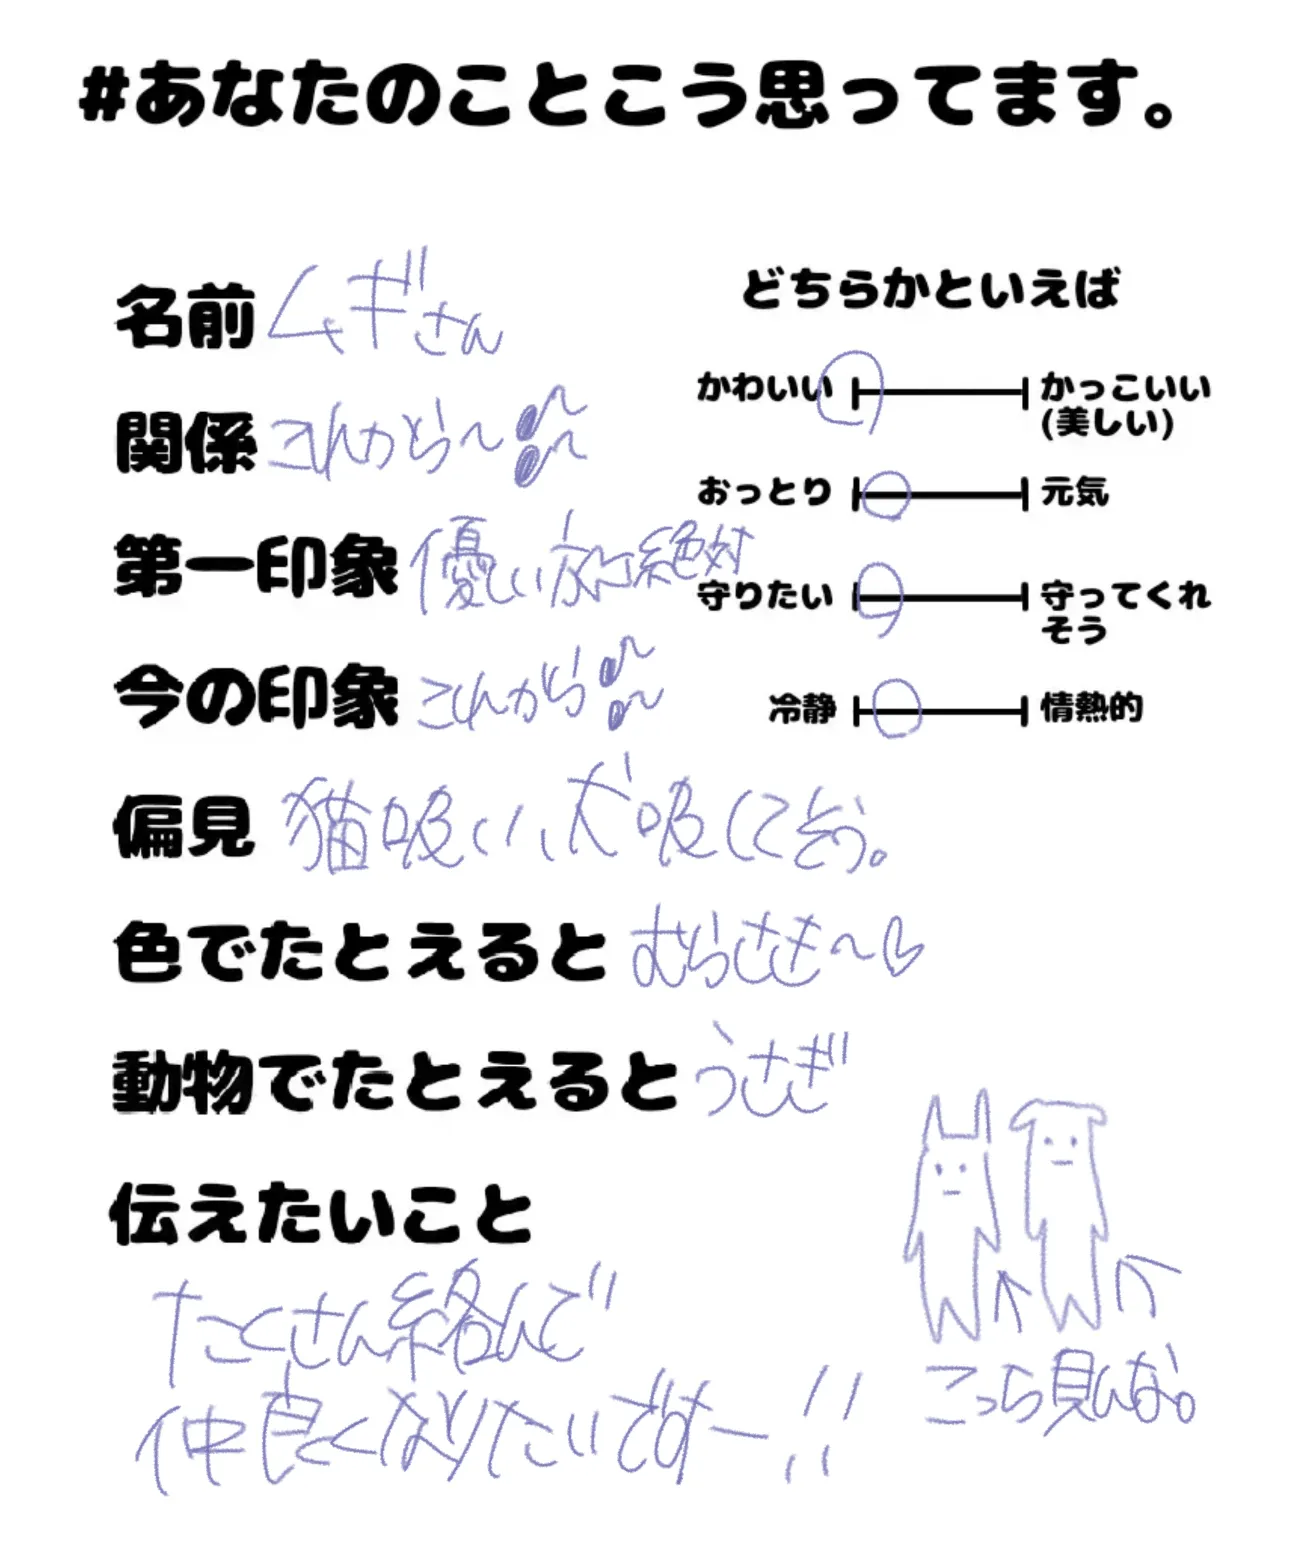 #あなたのことこう思ってます。
名前 ムギさん
関係 これから〜♪♪
第一印象 優しい 絶対
今の印象 これから♪♪
偏見 猫吸い、犬吸してそう。
色でたとえると むらさき〜♡
動物でたとえると うさぎ
伝えたいこと
たくさん絡んで
仲良くなりたいですー!!
どちらかといえば
かわいい かっこいい
(美しい)
おっとり 元気
守りたい 守ってくれ
そう
冷静 情熱的
こっち見んな。